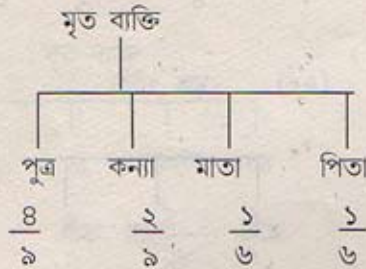 মৃত ব্যক্তি
পুত্র কন্যা মাতা পিতা
৪/৯ ২/৯ ১/৬ ১/৬